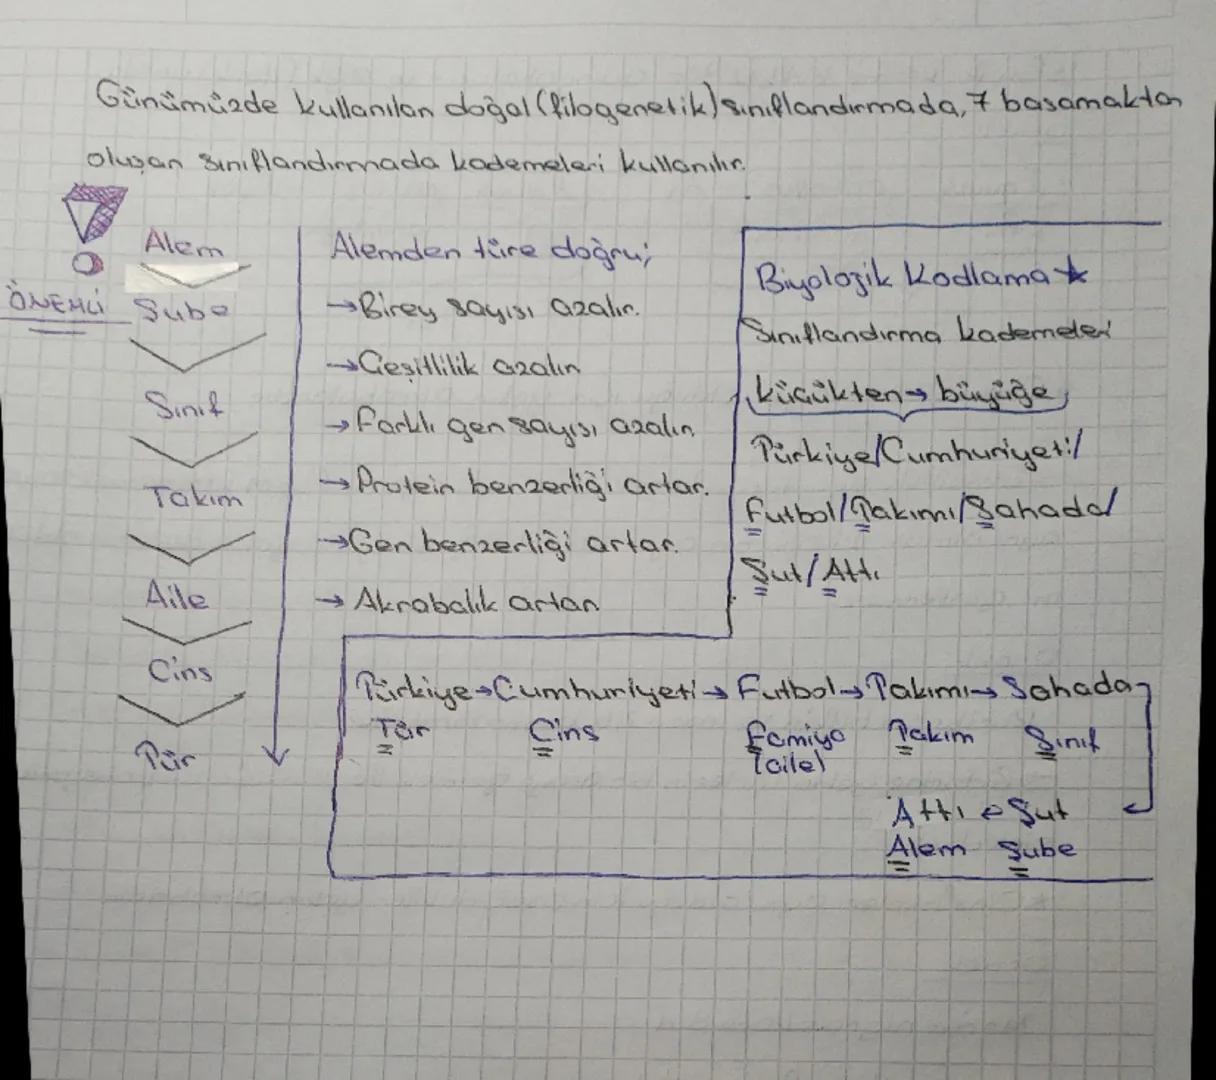 Günümüzde kullanılan doğal (filogenetik) sınıflandırmada, 7 basamaktan
oluşan sınıflandırmada kademeleri kullanılır.
ÖNEMLİ
Alem
Şube
Sınıf
Takım
Aile
Cins
Tür
Alemden türe doğru;
→Birey sayısı azalır.
→Çeşitlilik azalır
→farklı gen sayısı azalır
→Protein benzerliği artar.
→Gen benzerliği artar.
→Akrabalık artar
Biyolojik Kodlama ★
Sınıflandırma kademeleri
küçükten→büyüğe;
Türkiye/Cumhuriyeti/
futbol/Takımı/Sahada/
Şut/Attı
Türkiye→Cumhuriyeti→Futbol→Takımı→Sahada
Tür Cins familya Takım Sınıf
(aile)
Attı ← Şut
Alem Şube